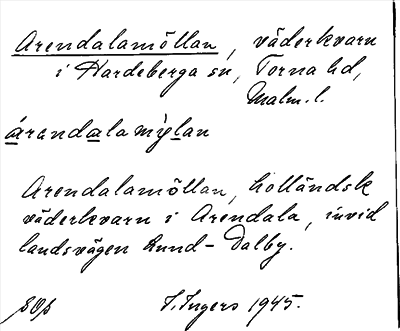 Arendalamöllan, väderkvarn
i Hardeberga sn, Torna hd,
Malm. l.
árandalamỳlan
Arendalamöllan, holländsk
väderkvarn i Arendala, invid
landsvägen Lund-Dalby.
I. Ingers 1945.